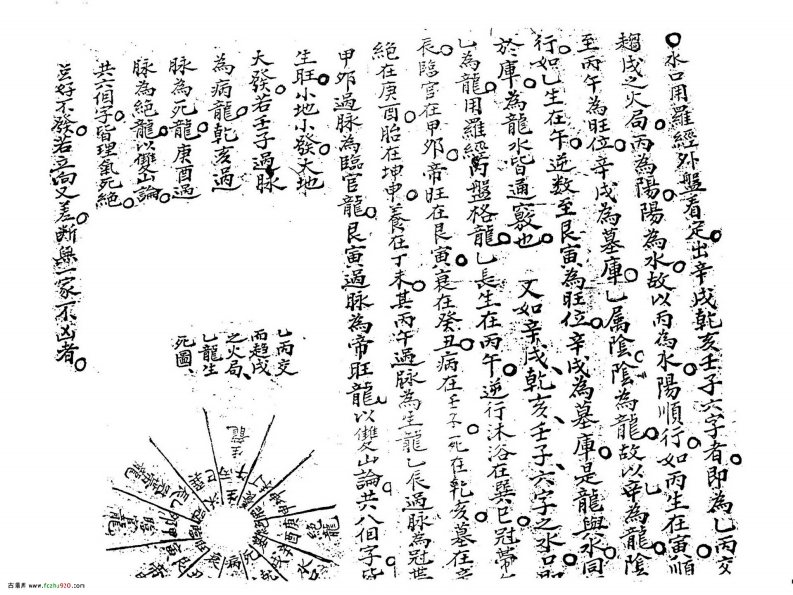 水口用羅經外盤看定出辛戌乾亥壬子六字者即為乙丙交
趨戌之火局丙為陽陽為水故以丙為水陽順行如丙生在寅順
至丙午為旺位辛戌為墓庫乙屬陰陰為龍故以辛為龍陰
行如乙生在午逆数至艮寅為旺位辛戌為墓庫是龍與水同
於庫為龍水皆通竅也 又如辛戌乾亥壬子六字之水口即
乙為龍用羅經內盤格龍乙長生在丙午逆行沐浴在巽巳冠帶
長臨官在甲卯帝旺在艮寅衰在癸丑病在壬子死在乾亥墓在辛
絕在庚酉胎在坤申養在丁未其丙午過脉為生龍乙辰過脉為冠帶
甲卯過脉為臨官龍艮寅過脉為帝旺龍以雙山論共八個字皆
生旺小地小發大地
大發若壬子過脉
為病龍乾亥過
脉為死龍庚酉過
脉為絕龍以雙山論
共六個字皆理氣死絕
豈好不發若立向又差斷無一家不凶者
乙丙交
而趨戌
之火局
乙龍生
死圖
生龍
絕龍
庚酉
坤申
死
病
www.fczhu920.com